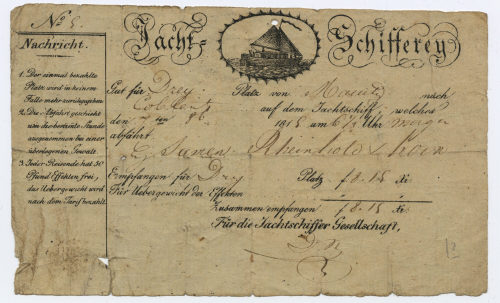 No. 8.
Nachricht.
1. Der einmal bezahlte
Platz wird in keinem
Falle mehr zurückgegeben
2. Die Abfahrt geschieht
um die bestimte Stunde
ausgenommen bei einer
überlegenen Gewalt.
3. Jeder Reisende hat 50
Pfund Effekten frei,
das Uebergewicht wird
nach dem Tarif bezahlt.
Jacht-Schifferey
Gut für Drey Platz von Maintz nach
Coblentz auf dem Jachtschiff, welches
den 7 ten 1818 am 6½ Uhr Morgen
abfährt
Rheinhold
Empfangen für Dry Platz f 8.15 Xr
Für Uebergewicht der Effekten
Zusammen empfangen f 8.15 Xr.
Für die Jachtschiffer Gesellschaft,